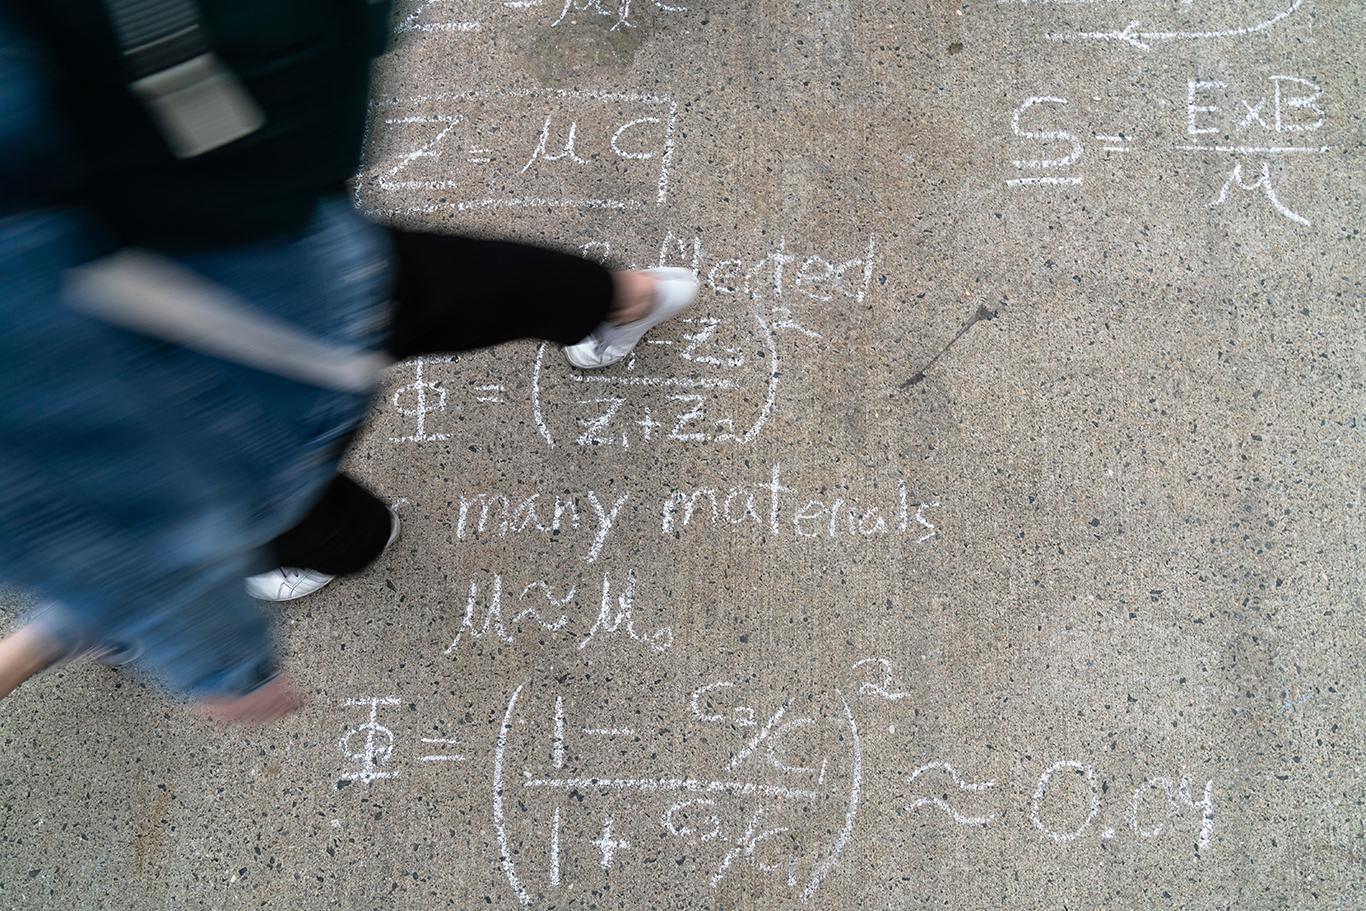 Z = μ C
S = E×B / μ
Φ = ( - Z₂ / Z₁ + Z₂ )²
many materials
μ ≈ μ₀
Φ = ( 1 - C₂/C₁ / 1 + C₂/C₁ )² ≈ 0.04